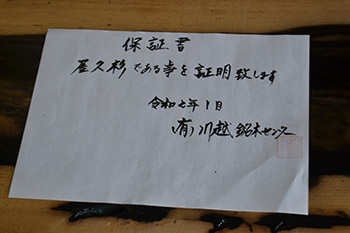 保証書
屋久杉である事を証明致します
令和七年1月
(有)川越銘木センター